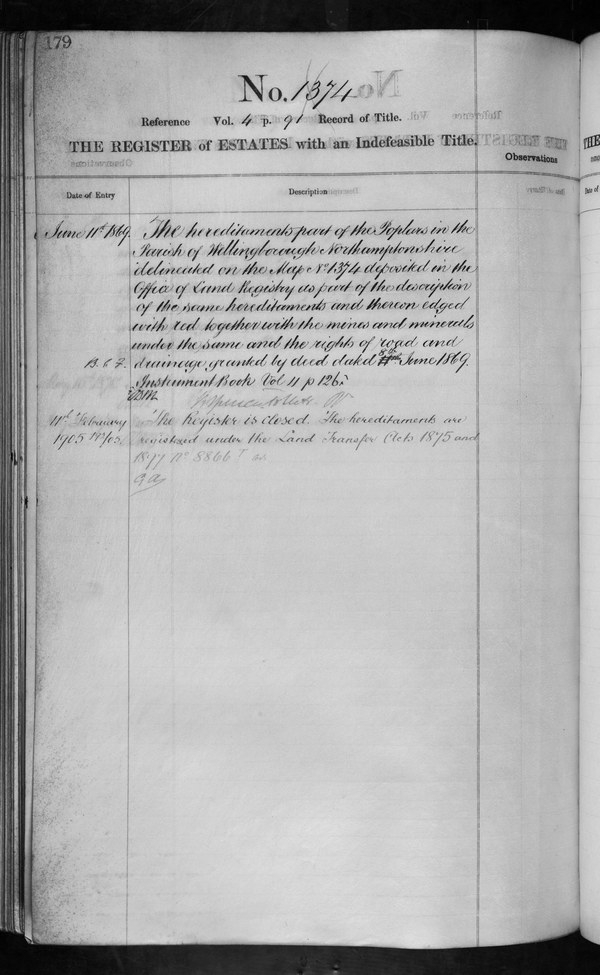 179
No. 1374
Reference Vol. 4 p. 91 Record of Title.
THE REGISTER of ESTATES with an Indefeasible Title.
Observations
Date of Entry
Description
June 11th 1869
The hereditaments part of the Poplars in the
Parish of Wellingborough Northamptonshire
delineated on the Map No 1374 deposited in the
Office of Land Registry as part of the description
of the same hereditaments and thereon edged
with red together with the mines and minerals
under the same and the rights of road and
13. 6 7.
drainage granted by deed dated June 1869.
Instrument Book Vol 11 p 126.
11th February
1905
The Register is closed. The hereditaments are
registered under the Land Transfer Acts 1875 and
1897 No 8866
THE
Date of